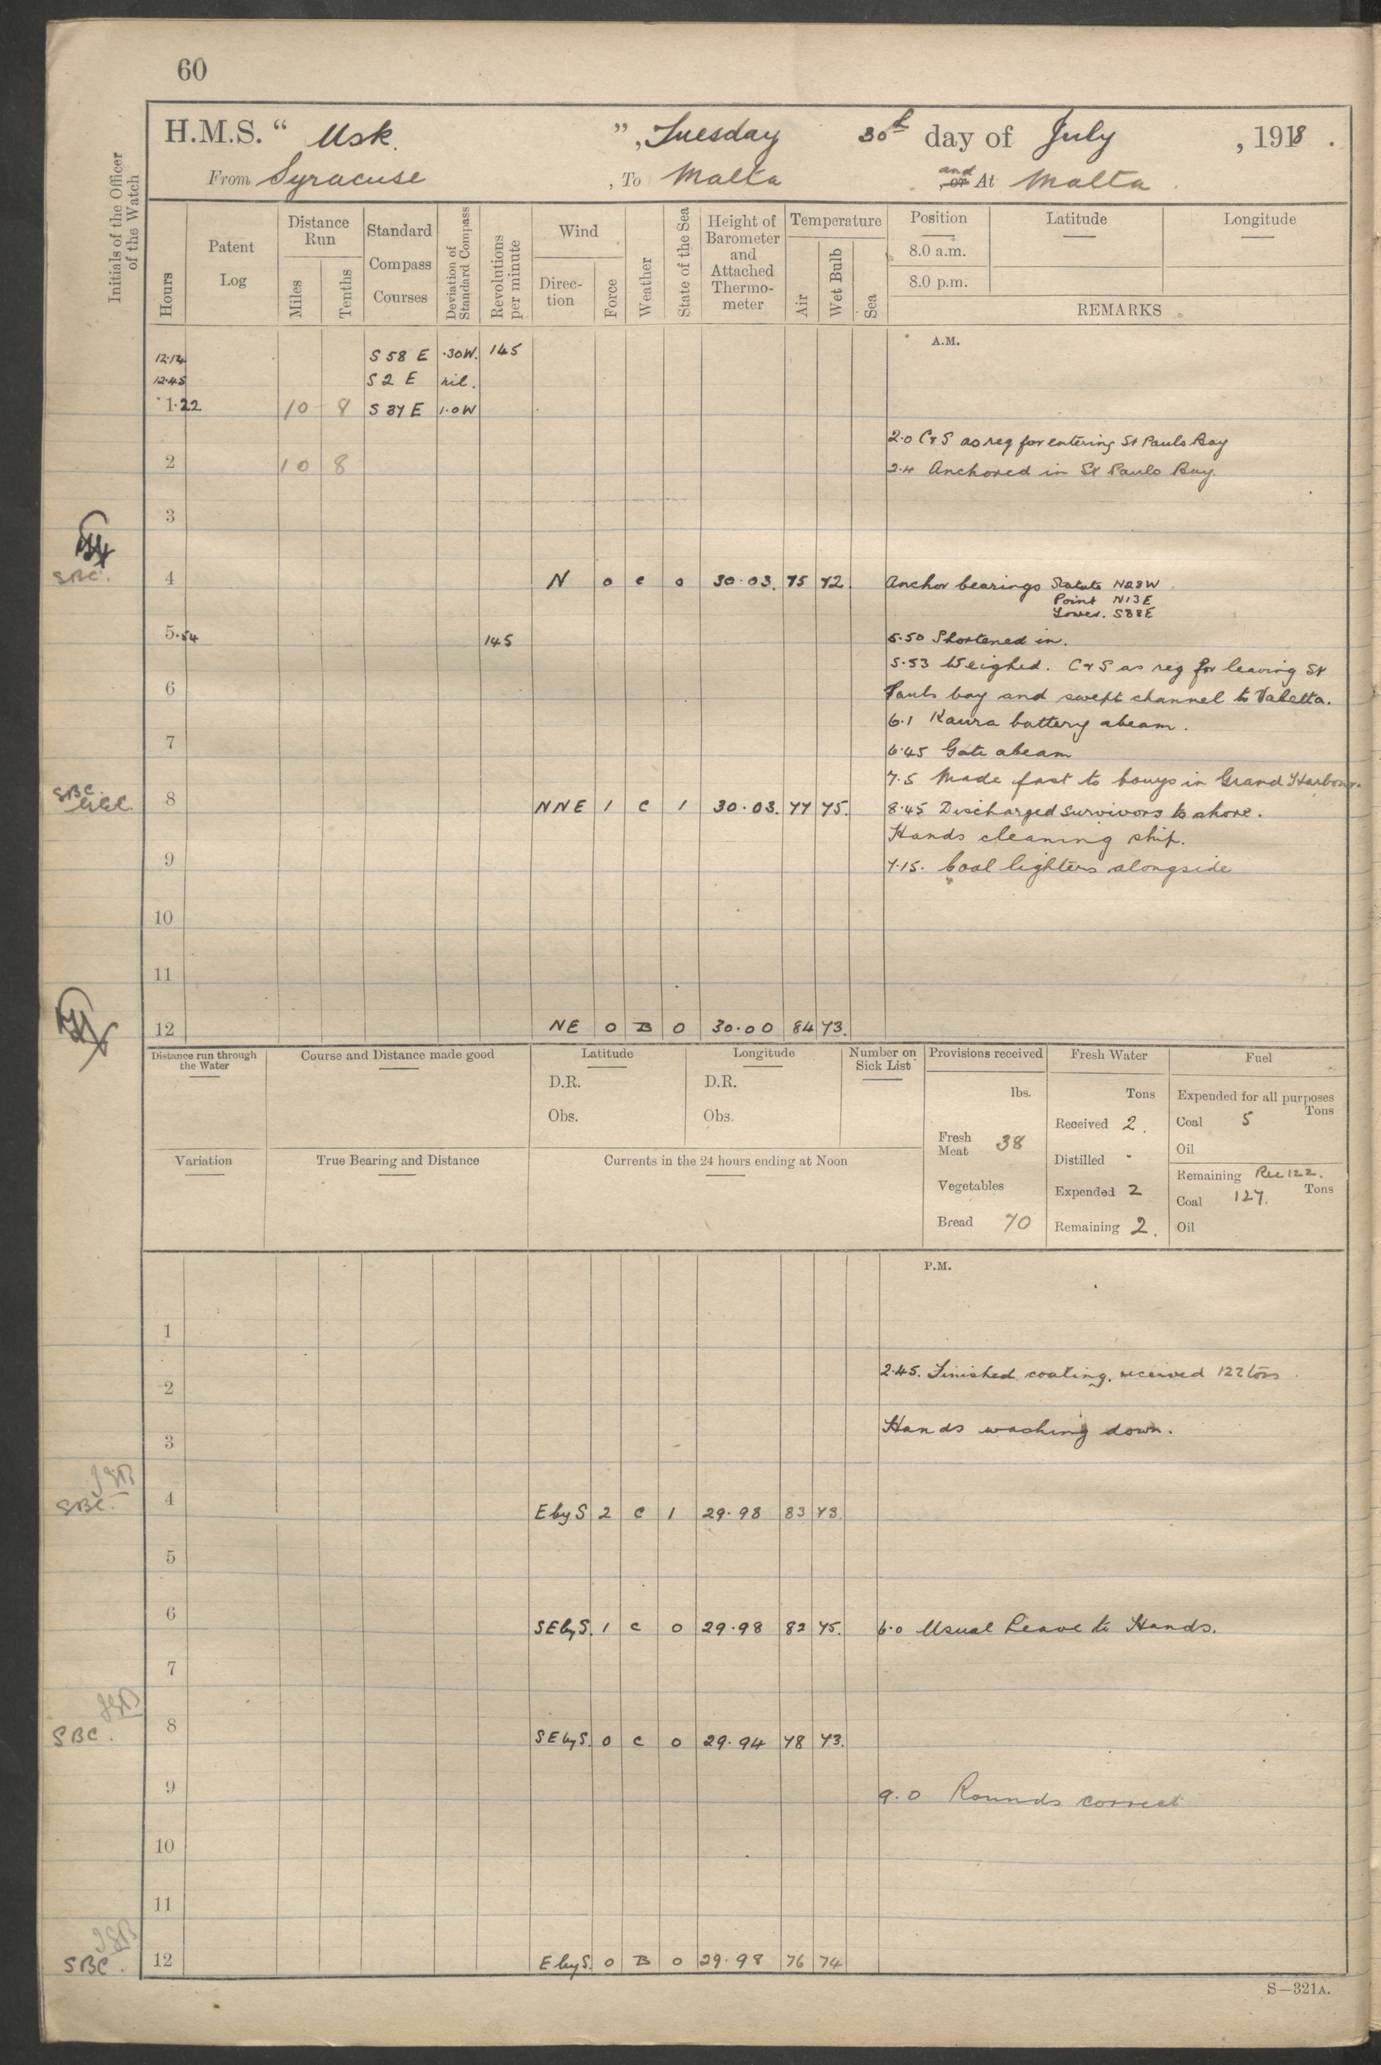 60
H.M.S. " Usk. ", Tuesday 30th day of July , 1918 .
From Syracuse , To Malta and or At Malta .
Initials of the Officer of the Watch
Hours
Patent Log
Distance Run
Miles
Tenths
Standard Compass Courses
Deviation of Standard Compass
Revolutions per minute
Wind
Direction
Force
Weather
State of the Sea
Height of Barometer and Attached Thermometer
Temperature
Air
Wet Bulb
Sea
Position Latitude Longitude
8.0 a.m.
8.0 p.m.
REMARKS
A.M.
12.12 S 58 E .30W. 145
12.45 S 2 E nil.
1.22 10 8 S 37 E 1.0W
2.0 C&S as req for entering St Pauls Bay
2 10 8 2.4 Anchored in St Pauls Bay.
3
SBC. 4 N 0 c 0 30.03. 75 72. Anchor bearings Statute N28W
Point N13E
Tower. S38E
5.54 145 5.50 Shortened in.
5.53 Weighed. C&S as req for leaving St
6 Pauls bay and swept channel to Valetta.
6.1 Kaura battery abeam.
7 6.45 Gate abeam
7.5 Made fast to bouys in Grand Harbour.
SBC. 8 NNE 1 C 1 30.03. 77 75. 8.45 Discharged survivors to shore.
Hands cleaning ship.
9 7.15. Coal lighters alongside
10
11
12 NE 0 B 0 30.00 84 73.
Distance run through the Water
Course and Distance made good
Latitude
D.R.
Obs.
Longitude
D.R.
Obs.
Number on Sick List
Provisions received
lbs.
Fresh Meat 38
Vegetables
Bread 70
Fresh Water
Tons
Received 2.
Distilled -
Expended 2
Remaining 2.
Fuel
Expended for all purposes
Tons
Coal 5
Oil
Remaining Rec 122.
Tons
Coal 127.
Oil
Variation
True Bearing and Distance
Currents in the 24 hours ending at Noon
P.M.
1
2.45. Finished coaling, received 122 tons
2
Hands washing down.
3
JSB
SBC. 4 E by S 2 C 1 29.98 83 73.
5
6 SE by S. 1 c 0 29.98 82 75. 6.0 Usual Leave to Hands.
7
JSB
SBC. 8 SE by S. 0 c 0 29.94 78 73.
9 9.0 Rounds correct
10
11
JSB
SBC. 12 E by S. 0 B 0 29.98 76 74
S—321A.